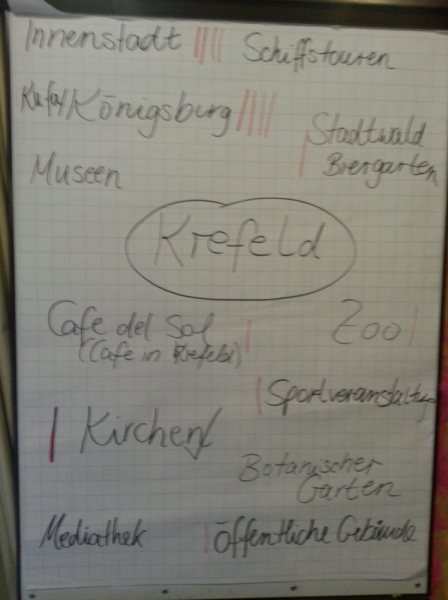 Innenstadt
Schiffstouren
Kufa/Königsburg
Stadtwald
Biergarten
Museen
Krefeld
Cafe del Sol
(Cafe in Krefeld)
Zoo
Sportveranstaltung
Kirchen
Botanischer
Garten
Mediathek
öffentliche Gebäude